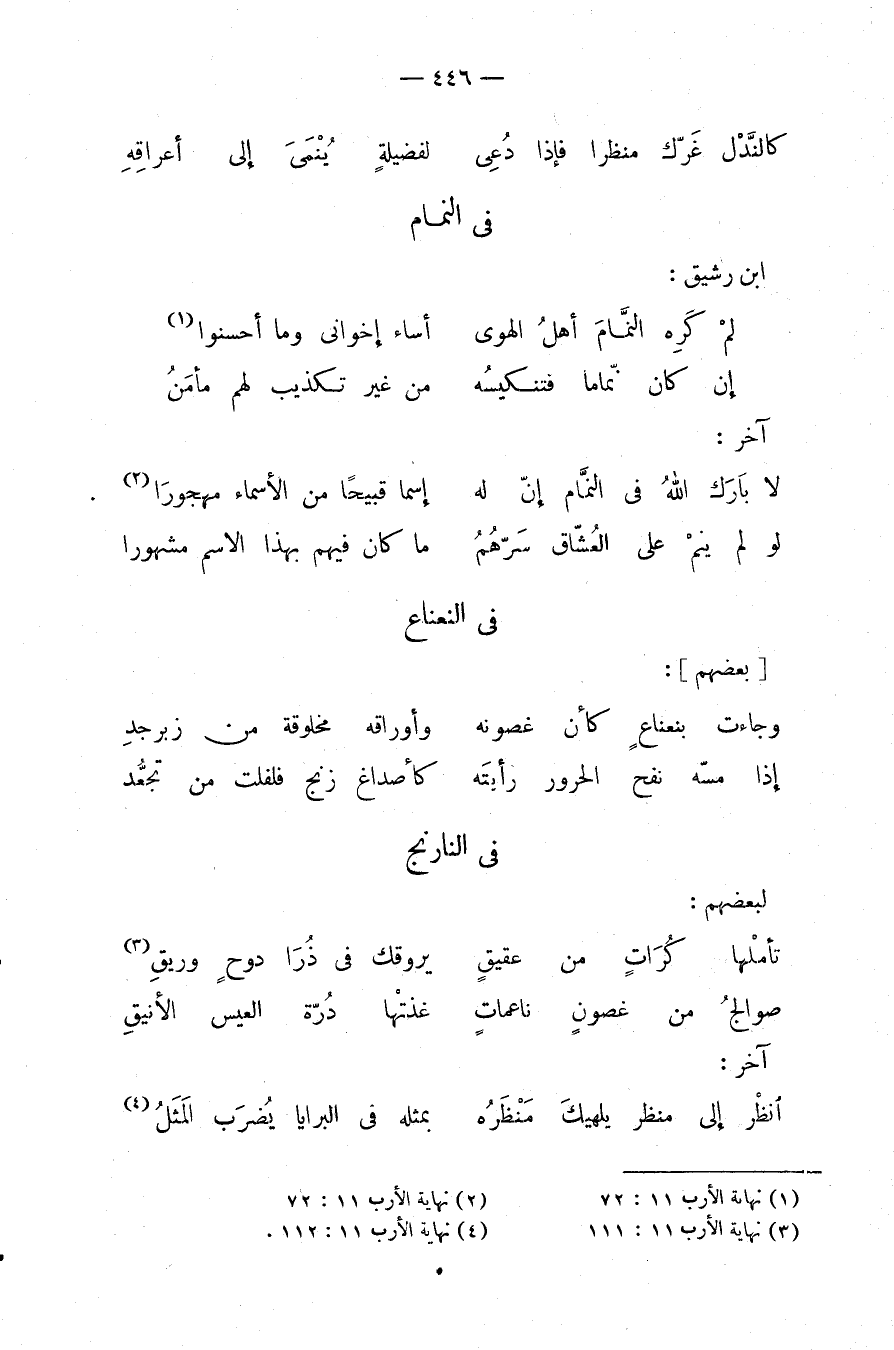 — ٤٤٦ —
كالنَّدْل غَرّك منظرا فإذا دُعِى لفضيلةٍ يُنْمَىَ إلى أعراقِهِ
فى النمام
ابن رشيق :
لمْ كَرِه النمَّامَ أهلُ الهوى أساء إخوانى وما أحسنوا(١)
إن كان نمّاما فتنكيسُه من غير تكذيب لهم مأمَنُ
آخر :
لا بَارَك اللهُ فى النمَّام إنّ له إسما قبيحًا من الأسماء مهجورَا(٢)
لو لم ينمْ على العُشّاق سَرّهُمُ ما كان فيهم بهذا الاسم مشهورا
فى النعناع
[ بعضهم ] :
وجاءت بنعناعٍ كأن غصونه وأوراقه مخلوقة من زبرجدِ
إذا مسّه نفح الحرور رأيتَه كأصداغ زنج فلفلت من تجعُّد
فى النارنج
لبعضهم :
تأملْها كُرَاتٍ من عقيقٍ يروقك فى ذُرَا دوحٍ وريقِ(٣)
صوالجُ من غصونٍ ناعماتٍ غذتْها دُرّة العيس الأنيقِ
آخر :
اُنظْر إلى منظر يلهيكَ مَنْظَرُه بمثله فى البرايا يُضرَب المَثَلُ(٤)
(١) نهاىة الأرب ١١ : ٧٢ (٢) نهاية الأرب ١١ : ٧٢
(٣) نهاية الأرب ١١ : ١١١ (٤) نهاية الأرب ١١ : ١١٢ .